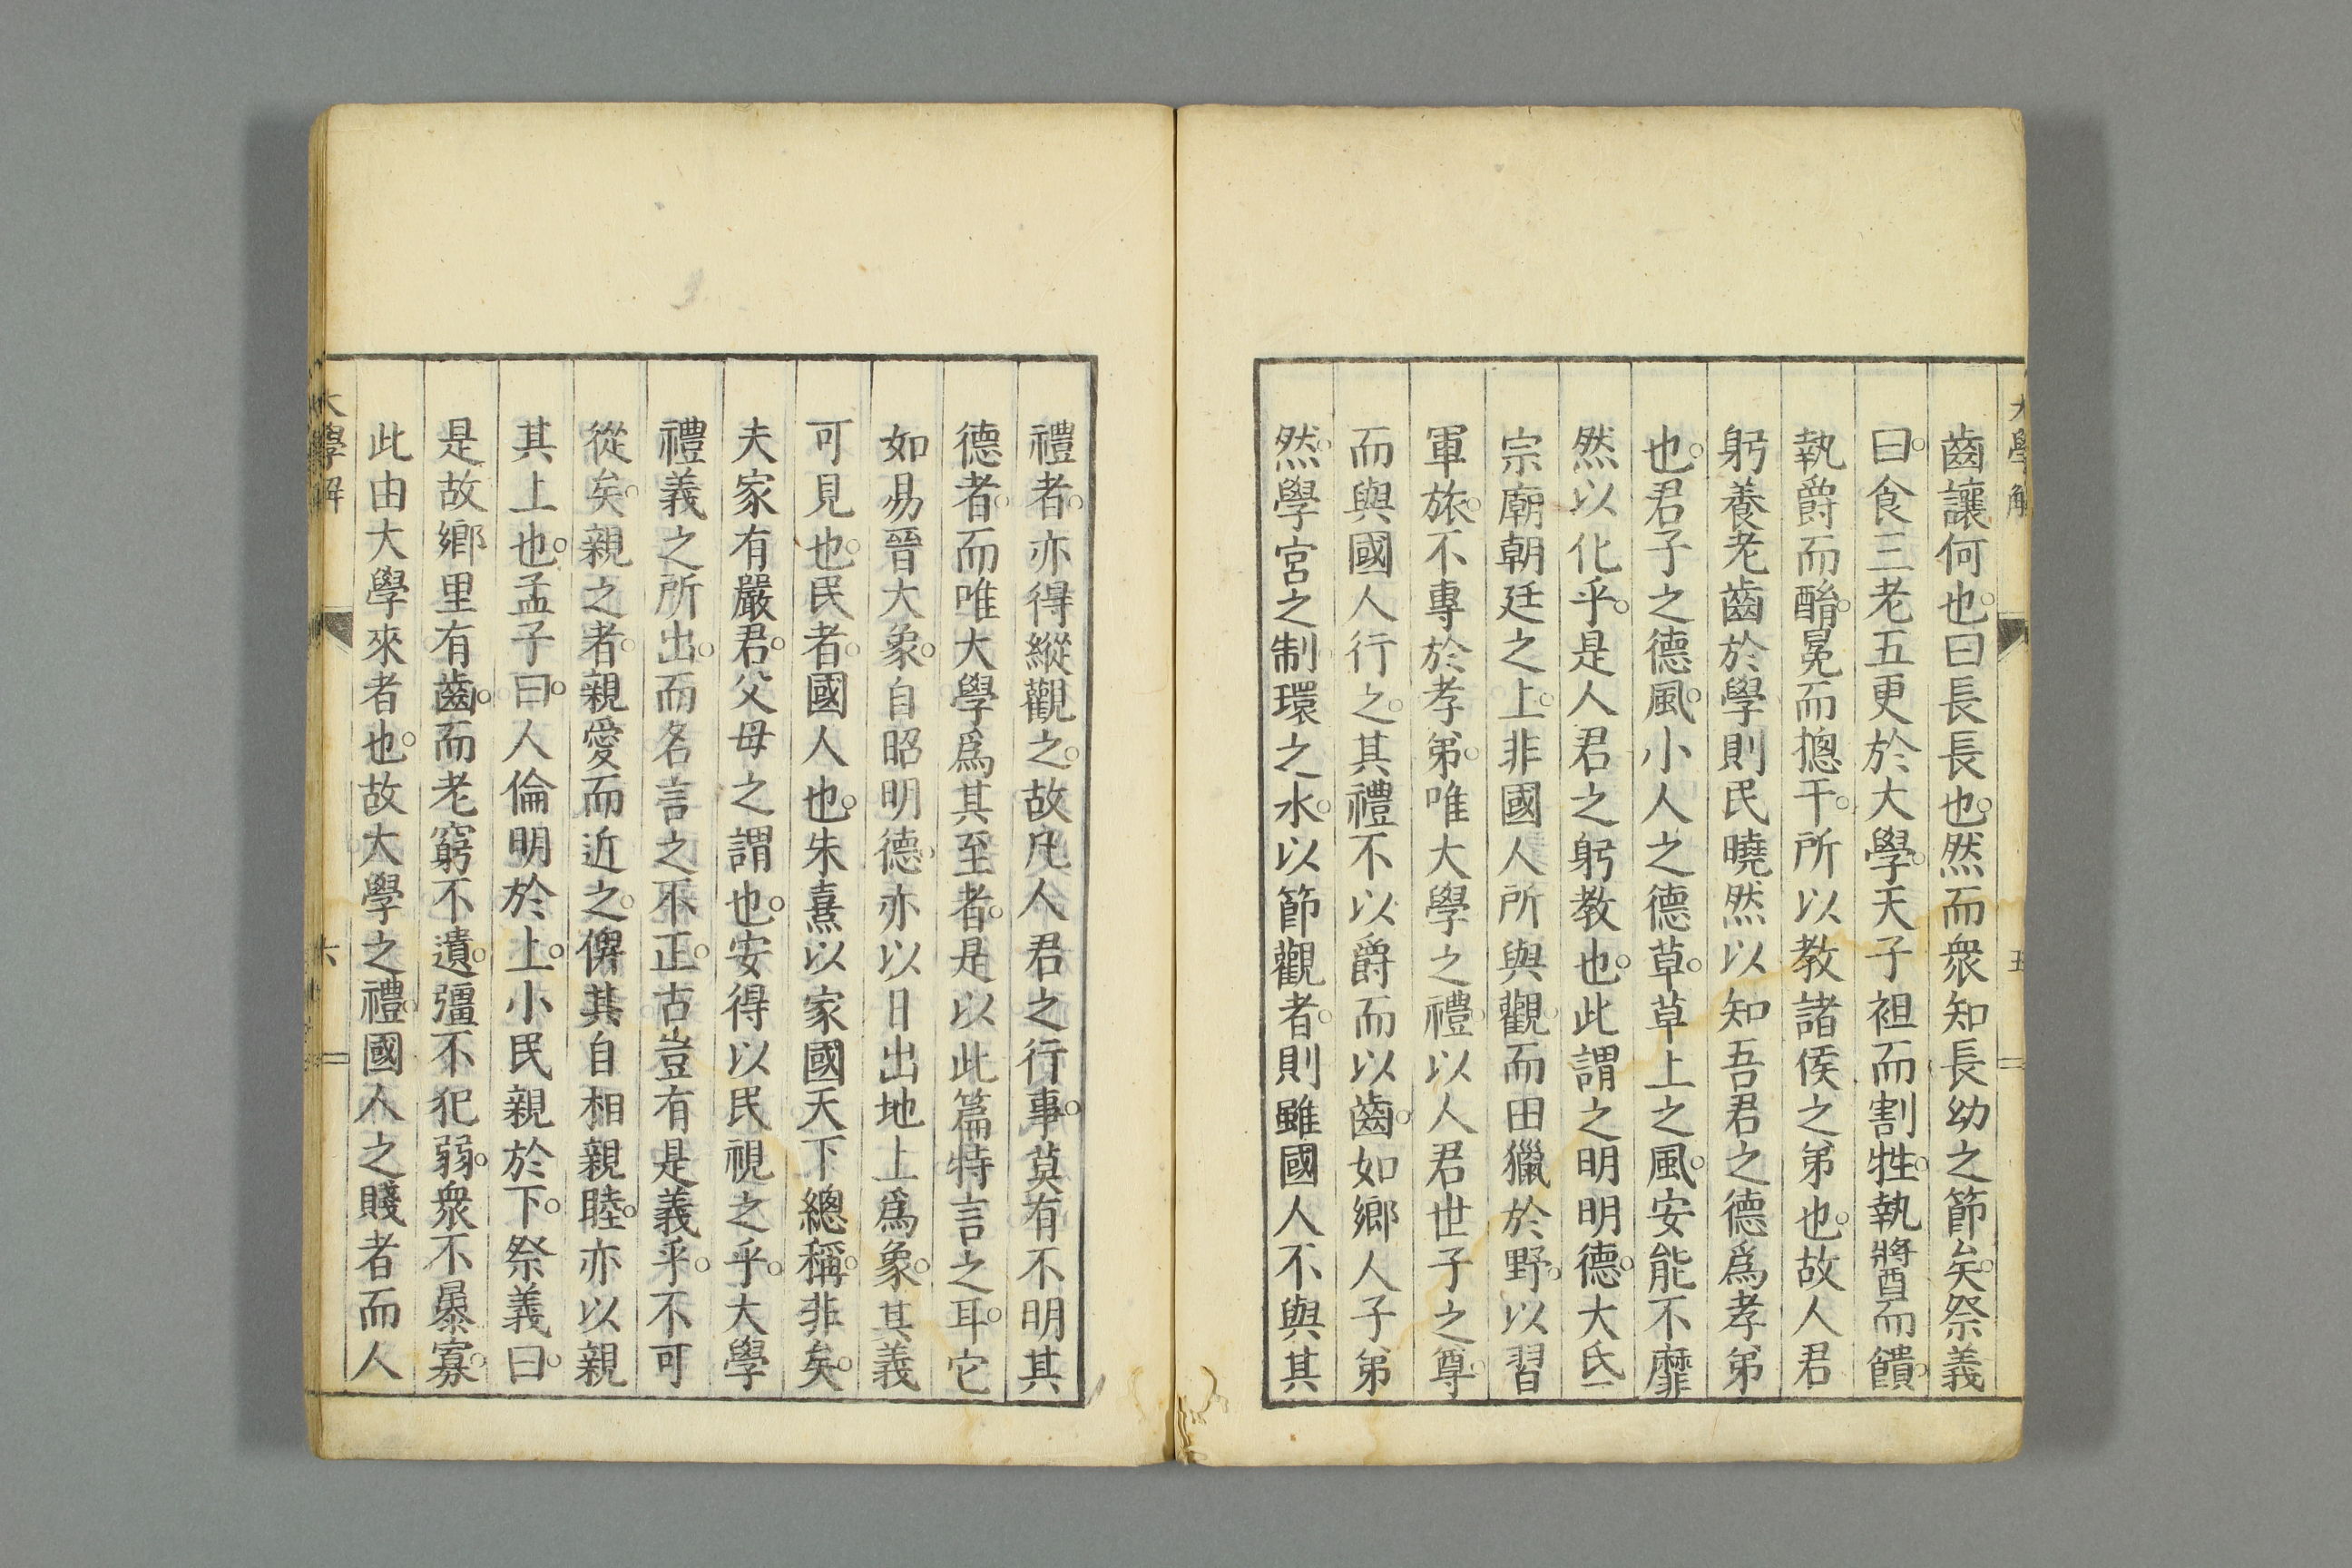 齒讓何也。曰長長也。然而衆知長幼之節矣。祭義
曰。食三老五更於大學。天子袒而割牲。執醬而饋。
執爵而酳。冕而摠干。所以教諸侯之弟也。故人君
躬養老齒於學則民曉然以知吾君之德爲孝弟
也。君子之德風。小人之德草。草上之風。安能不靡
然以化乎。是人君之躬教也。此謂之明明德。大氐
宗廟朝廷之上。非國人所與觀。而田獵於野。以習
軍旅。不專於孝弟。唯大學之禮。以人君世子之尊。
而與國人行之。其禮不以爵而以齒。如鄉人子弟
然。學宮之制環之水。以節觀者。則雖國人不與其
禮者。亦得縱觀之。故凡人君之行事。莫有不明其
德者。而唯大學爲其至者。是以此篇特言之耳。它
如易晉大象。自昭明德。亦以日出地上爲象。其義
可見也。民者。國人也。朱熹以家國天下總稱。非矣。
夫家有嚴君。父母之謂也。安得以民視之乎。大學
禮義之所出。而名言之不正。古豈有是義乎。不可
從矣。親之者。親愛而近之。俾其自相親睦。亦以親
其上也。孟子曰。人倫明於上。小民親於下。祭義曰。
是故鄉里有齒。而老窮不遺。彊不犯弱。衆不暴寡。
此由大學來者也。故大學之禮。國人之賤者而人
大學解
五
大學解
六